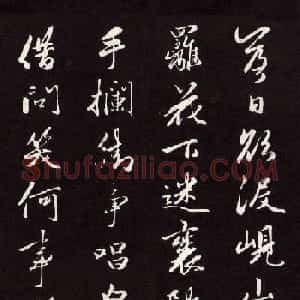 落日欲没岘山
䍦花下迷襄阳
手拦街争唱白
借问笑何事
Shufaziliao.com